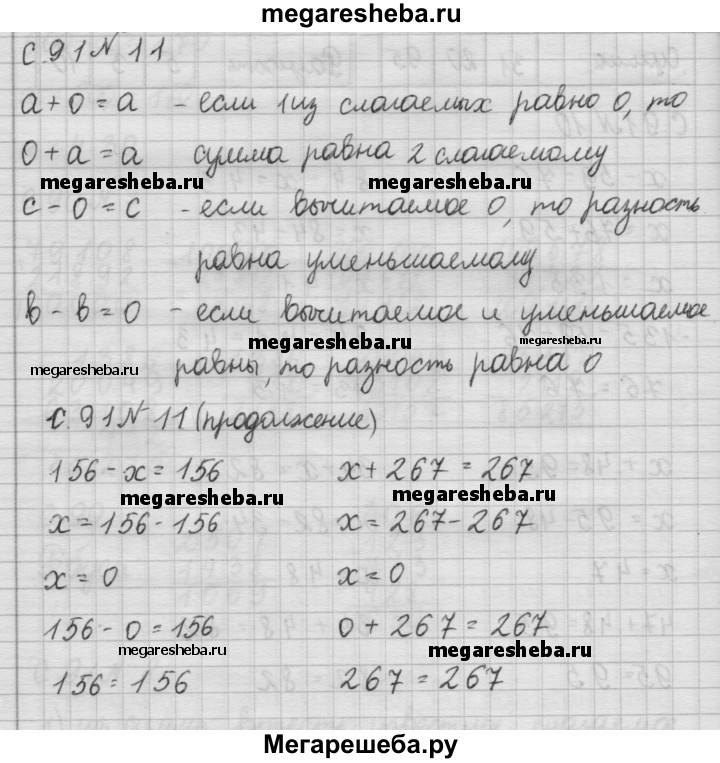 megaresheba.ru
С 91 № 11
а + 0 = а - если 1 из слагаемых равно 0, то
0 + а = а сумма равна 2 слагаемому
megaresheba.ru megaresheba.ru
с - 0 = с - если вычитаемое 0, то разность
равна уменьшаемому
в - в = 0 - если вычитаемое и уменьшаемое
megaresheba.ru megaresheba.ru
megaresheba.ru равны, то разность равна 0
с. 91 № 11 (продолжение)
156 - х = 156 х + 267 = 267
megaresheba.ru megaresheba.ru
х = 156 - 156 х = 267 - 267
х = 0 х = 0
156 - 0 = 156 0 + 267 = 267
megaresheba.ru megaresheba.ru
156 = 156 267 = 267
Мегарешеба.ру